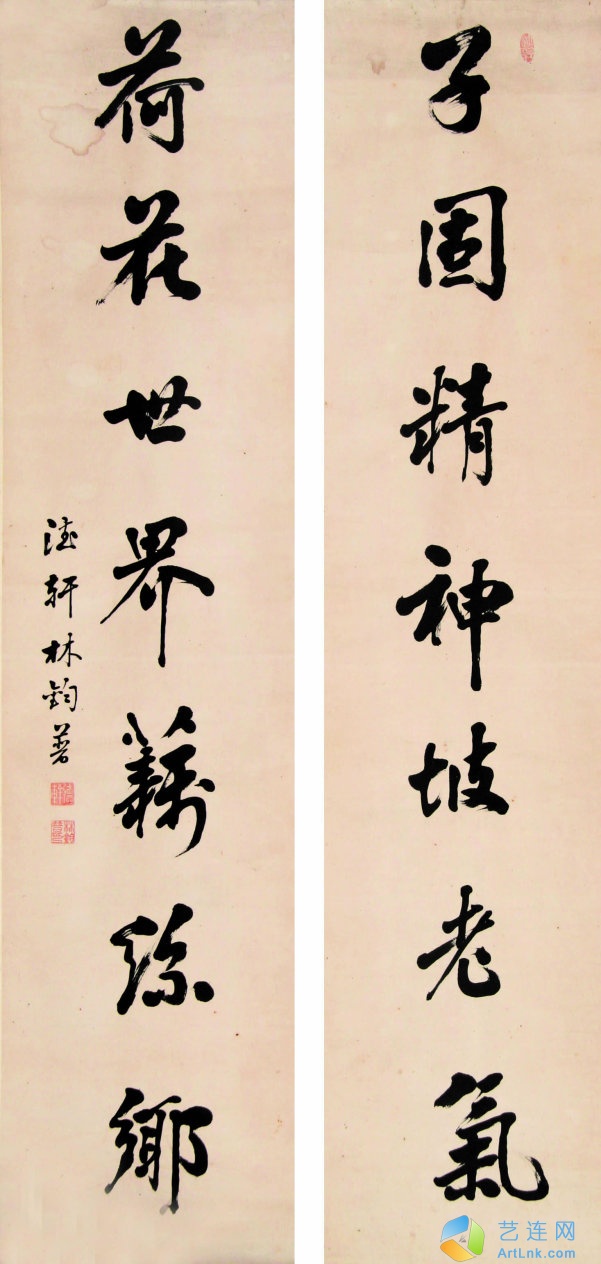 子固精神坡老氣
荷花世界藕絲鄉
軒林鈞
艺连网
ArtLnk.com